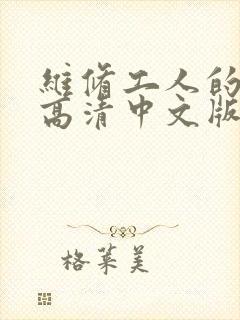 維脩工人的
高清中文版
格莱美